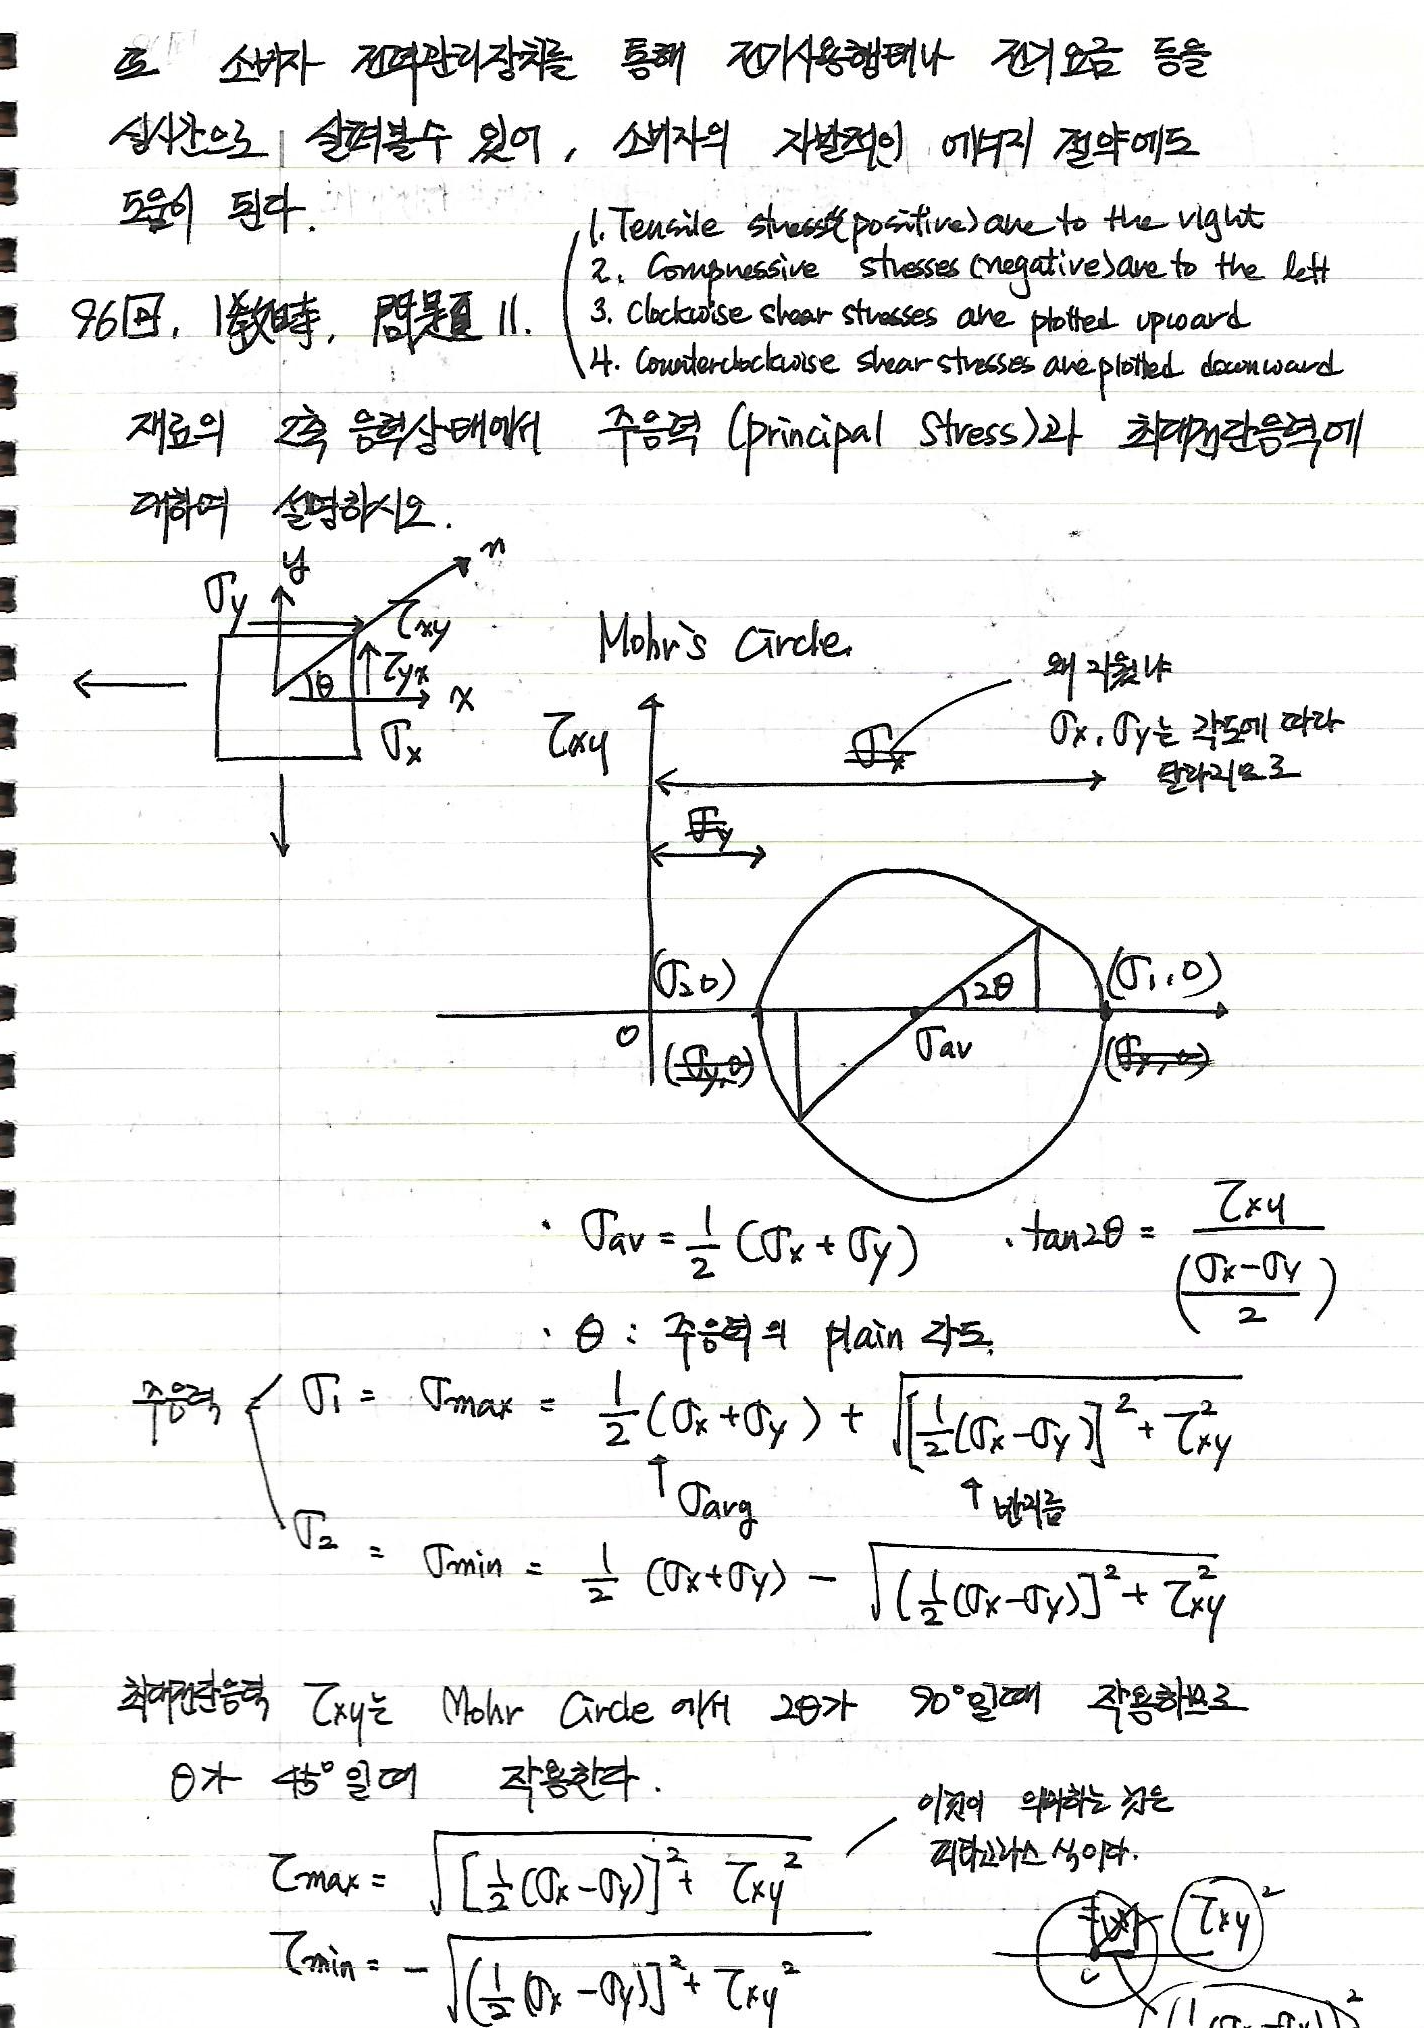 또 소비자 전력관리장치를 통해 전기사용행태나 전기요금 등을
실시간으로 살펴볼수 있어, 소비자의 자발적인 에너지 절약에도
도움이 된다.
1. Tensile stress(positive) are to the right
2. Compressive stresses (negative) are to the left
3. Clockwise shear stresses are plotted upward
4. Counterclockwise shear stresses are plotted downward
96回, 1敎時, 問題 11.
재료의 2축 응력상태에서 주응력 (principal stress)과 최대전단응력에
대하여 설명하시오.
y
n
σy
τxy
τyx
θ
x
σx
Mohr's Circle.
왜 지웠냐
σx, σy는 각도에 따라
달라지므로
τxy
σx
σy
(σ2 0)
2θ
(σ1, 0)
0
(σy, 0)
σav
(σx, 0)
· σav = 1/2 (σx + σy) · tan2θ = τxy / ((σx-σy)/2)
· θ : 주응력의 plain 각도.
주응력
σ1 = σmax = 1/2 (σx + σy) + √([1/2(σx-σy)]² + τxy²)
↑ σavg ↑ 반지름
σ2 = σmin = 1/2 (σx+σy) - √((1/2(σx-σy)]² + τxy²)
최대전단응력 τxy는 Mohr Circle 에서 2θ가 90°일때 작용하므로
θ가 45°일때 작용한다.
이것이 의미하는 것은
피타고라스 식이다.
τmax = √([1/2(σx-σy)]² + τxy²)
τmin = -√((1/2(σx-σy)]² + τxy²)
τxy²
c
(1/2(σx-σy))²